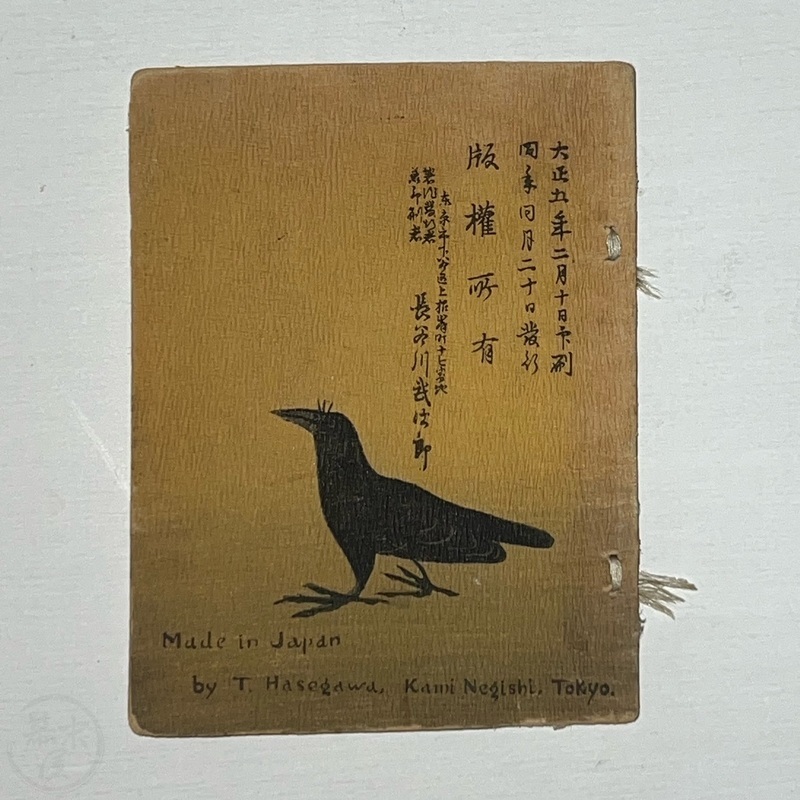 大正五年二月十日印刷
同年同月二十日發行
版權所有
東京市下谷區上根岸町十七番地
著作發行者
兼印刷者
長谷川武次郎
Made in Japan
by T. Hasegawa, Kami Negishi, Tokyo.